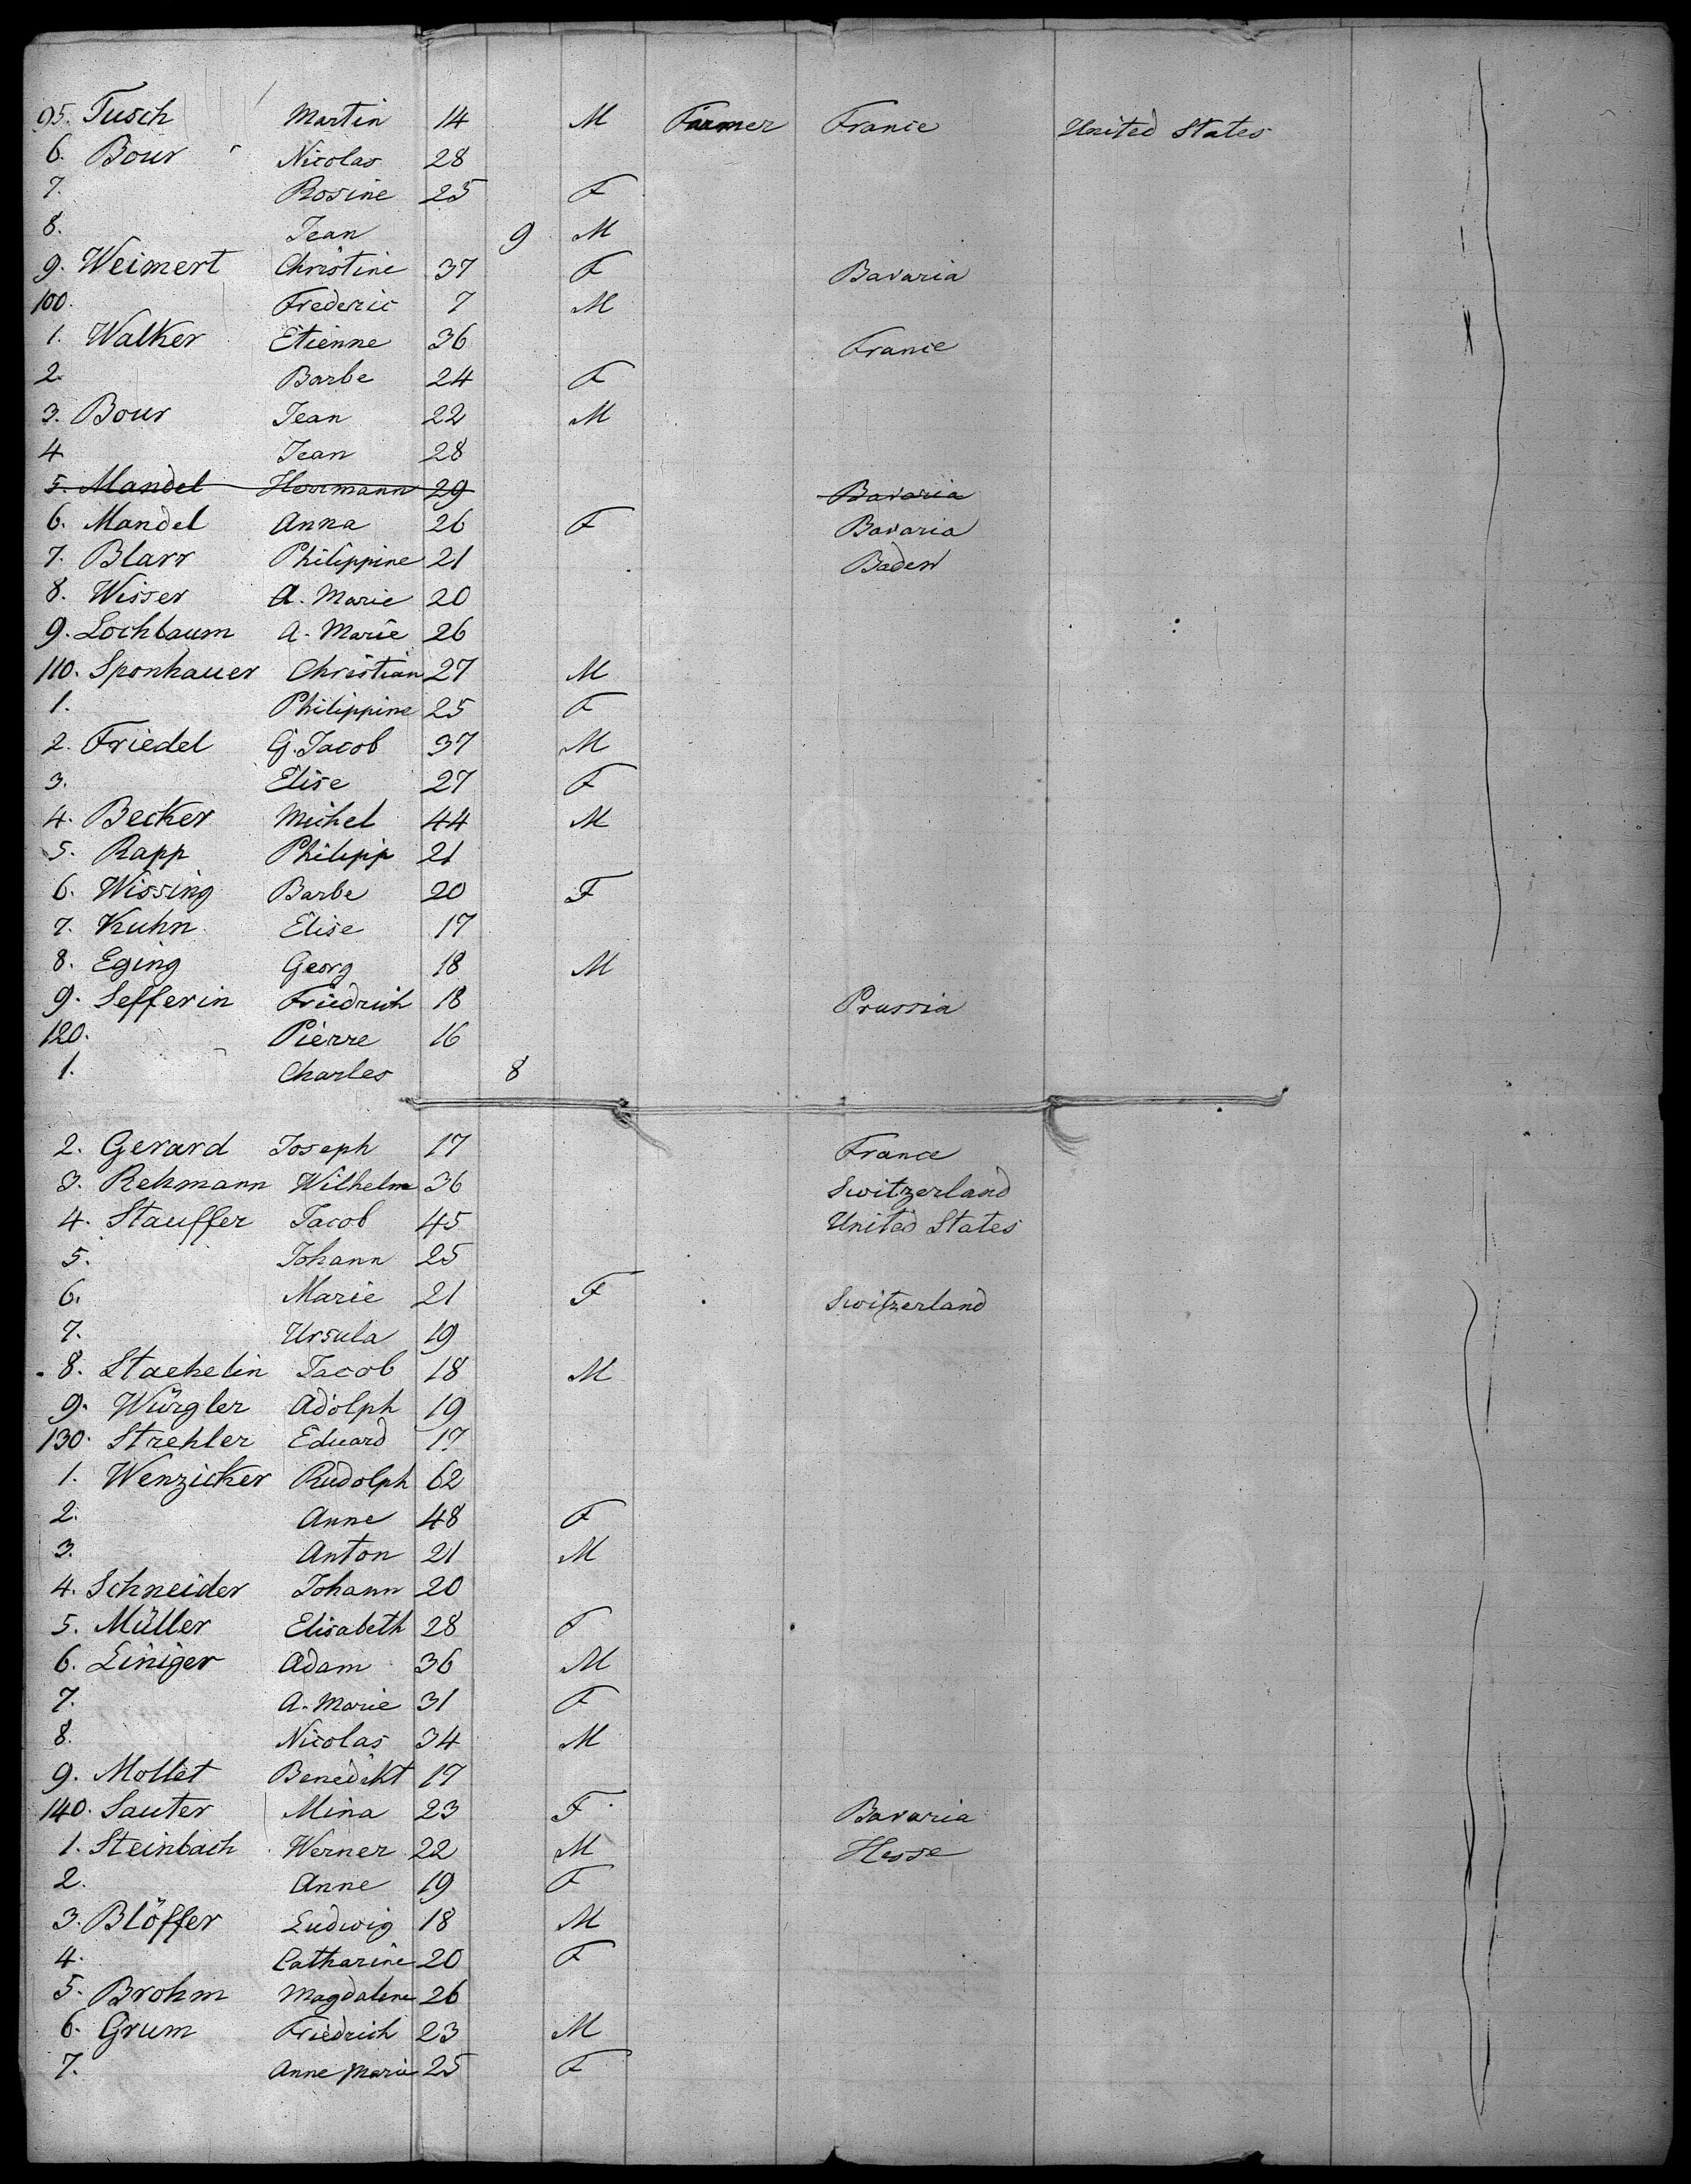 95. Tusch Martin 14 M Farmer France United States
6. Bour Nicolas 28
7. Rosine 25 F
8. Jean 9 M
9. Weimert Christine 37 F Bavaria
100. Frederic 7 M
1. Walker Etienne 36 France
2. Barbe 24 F
3. Bour Jean 22 M
4 Jean 28
5. Mandel Herrmann 29 Bavaria
6. Mandel Anna 26 F Bavaria
7. Blarr Philippine 21 Baden
8. Wisser A. Marie 20
9. Lochbaum A. Marie 26
110. Sponhauer Christian 27 M
1. Philippine 25 F
2. Friedel G. Jacob 37 M
3. Elise 27 F
4. Becker Michel 44 M
5. Rapp Philipp 21
6. Wissing Barbe 20 F
7. Kuhn Elise 17
8. Eging Georg 18 M
9. Sefferin Friedrich 18 Prussia
120. Pierre 16
1. Charles 8
2. Gerard Joseph 17 France
3. Rehmann Wilhelm 36 Switzerland
4. Stauffer Jacob 45 United States
5. Johann 25
6. Marie 21 F Switzerland
7. Ursula 19
8. Staehelin Jacob 18 M
9. Würgler Adolph 19
130. Strehler Eduard 17
1. Wenzicker Rudolph 62
2. Anne 48 F
3. Anton 21 M
4. Schneider Johann 20
5. Müller Elisabeth 28 F
6. Liniger Adam 36 M
7. A. Marie 31 F
8. Nicolas 34 M
9. Mollet Benedikt 17
140. Sauter Mina 23 F Bavaria
1. Steinbach Werner 22 M Hesse
2. Anne 19 F
3. Blöffer Ludwig 18 M
4. Catharine 20 F
5. Brohm Magdalene 26
6. Grum Friedrich 23 M
7. Anne Marie 25 F